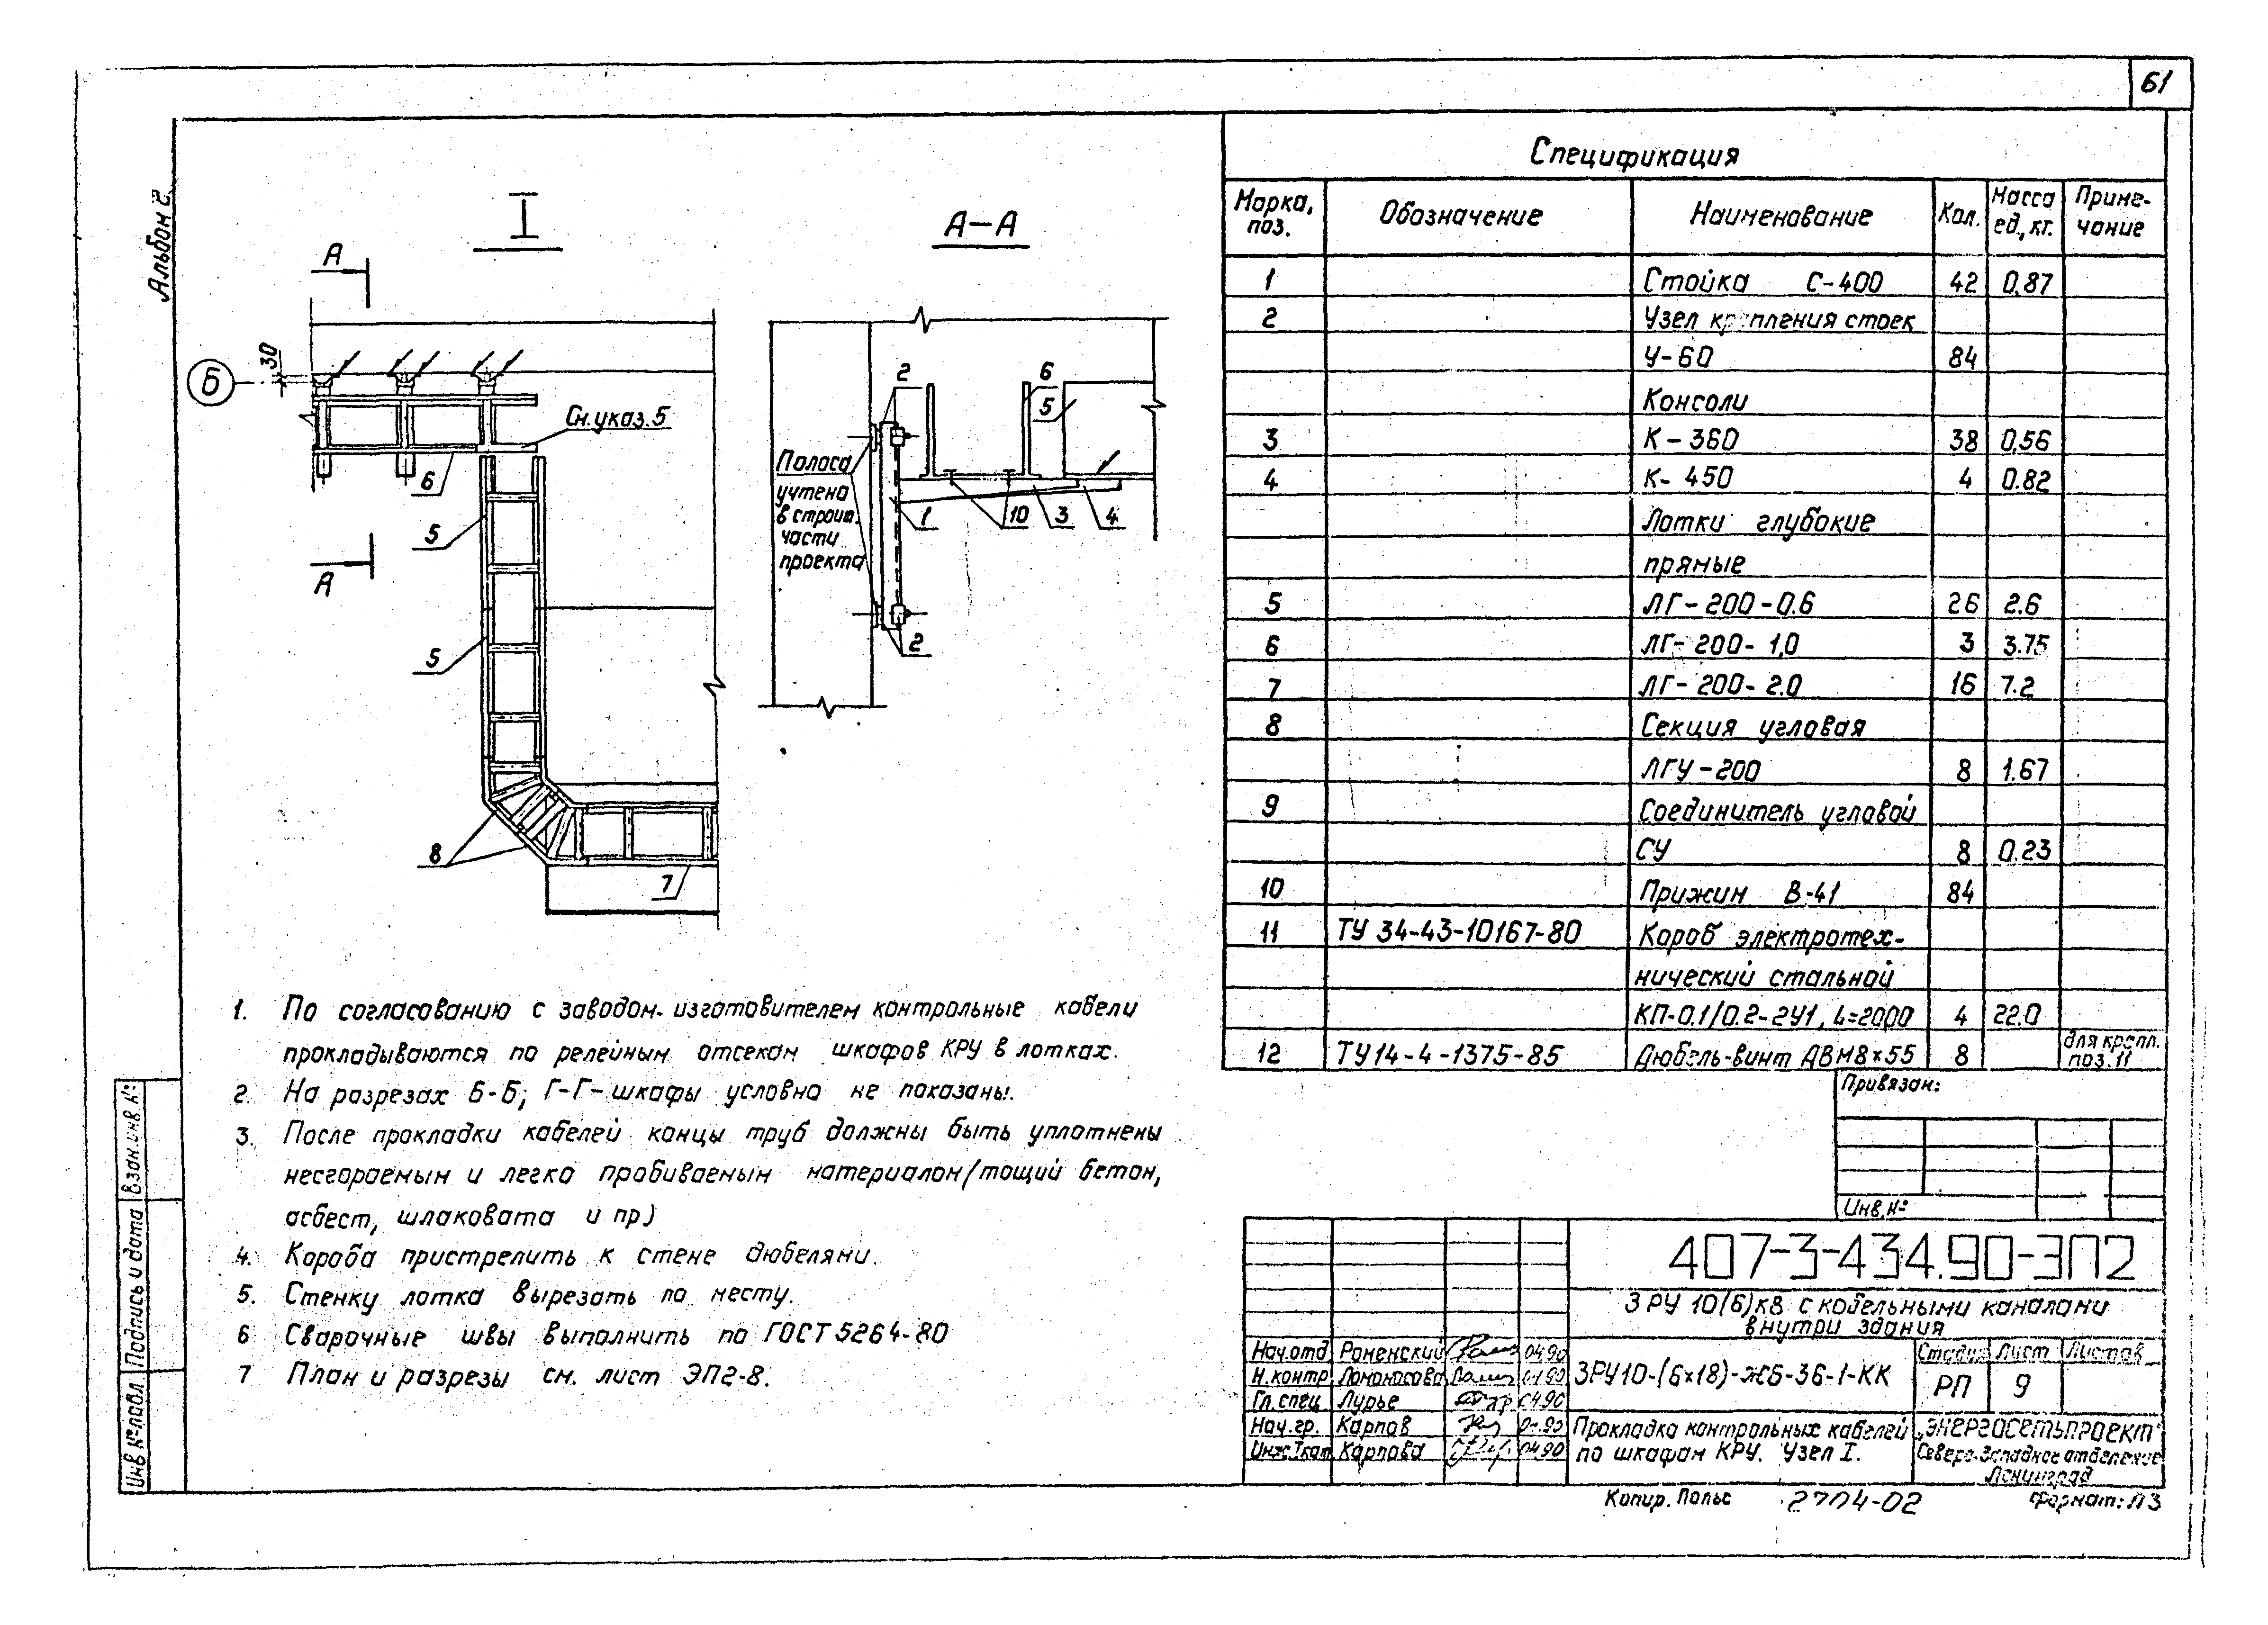 61
Альбом 2
I
А-А
А
А
Б
30
См. указ. 5
6
5
5
8
7
2
6
5
Полоса
учтена
в строит.
части
проекта
1
10
3
4
2
Спецификация
Марка, поз. Обозначение Наименование Кол. Масса ед., кг. Примечание
1 Стойка С-400 42 0,87
2 Узел крепления стоек
У-60 84
Консоли
3 К-360 38 0,56
4 К-450 4 0.82
Лотки глубокие
прямые
5 ЛГ-200-0.6 26 2.6
6 ЛГ-200-1,0 3 3.75
7 ЛГ-200-2.0 16 7.2
8 Секция угловая
ЛГУ-200 8 1.67
9 Соединитель угловой
СУ 8 0.23
10 Прижим В-41 84
11 ТУ 34-43-10167-80 Короб электротех-
нический стальной
КП-0.1/0.2-2У1, L=2000 4 22.0
12 ТУ14-4-1375-85 Дюбель-винт ДВМ8×55 8 для крепл. поз. 11
1. По согласованию с заводом-изготовителем контрольные кабели
прокладываются по релейным отсекам шкафов КРУ в лотках.
2. На разрезах Б-Б; Г-Г-шкафы условно не показаны.
3. После прокладки кабелей концы труб должны быть уплотнены
несгораемым и легко пробиваемым материалом (тощий бетон,
асбест, шлаковата и пр)
4. Короба пристрелить к стене дюбелями.
5. Стенку лотка вырезать по месту.
6 Сварочные швы выполнить по ГОСТ 5264-80
7 План и разрезы см. лист ЭП2-8.
Привязан:
Инв. №
407-3-434.90-ЭП2
ЗРУ 10(6)кВ с кабельными каналами
внутри здания
Нач.отд Роменский 04.90
Н.контр Ломоносова 04.90
Гл.спец Лурье 04.90
Нач.гр. Карпов 04.90
Инж.Iкат Карпова 04.90
ЗРУ10-(6×18)-ЖБ-36-1-КК
Стадия Лист Листов
РП 9
Прокладка контрольных кабелей
по шкафам КРУ. Узел I.
„ЭНЕРГОСЕТЬПРОЕКТ"
Северо-Западное отделение
Ленинград
Копир. Польс 2704-02 Формат: А3
Взам.инв №
Подпись и дата
Инв № подл